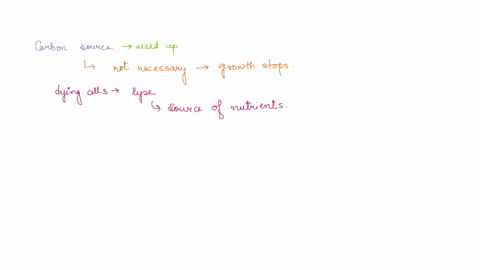 Carbon source → used up
↳ not necessary → growth stops.
dying cells → lyse
↳ source of nutrients.